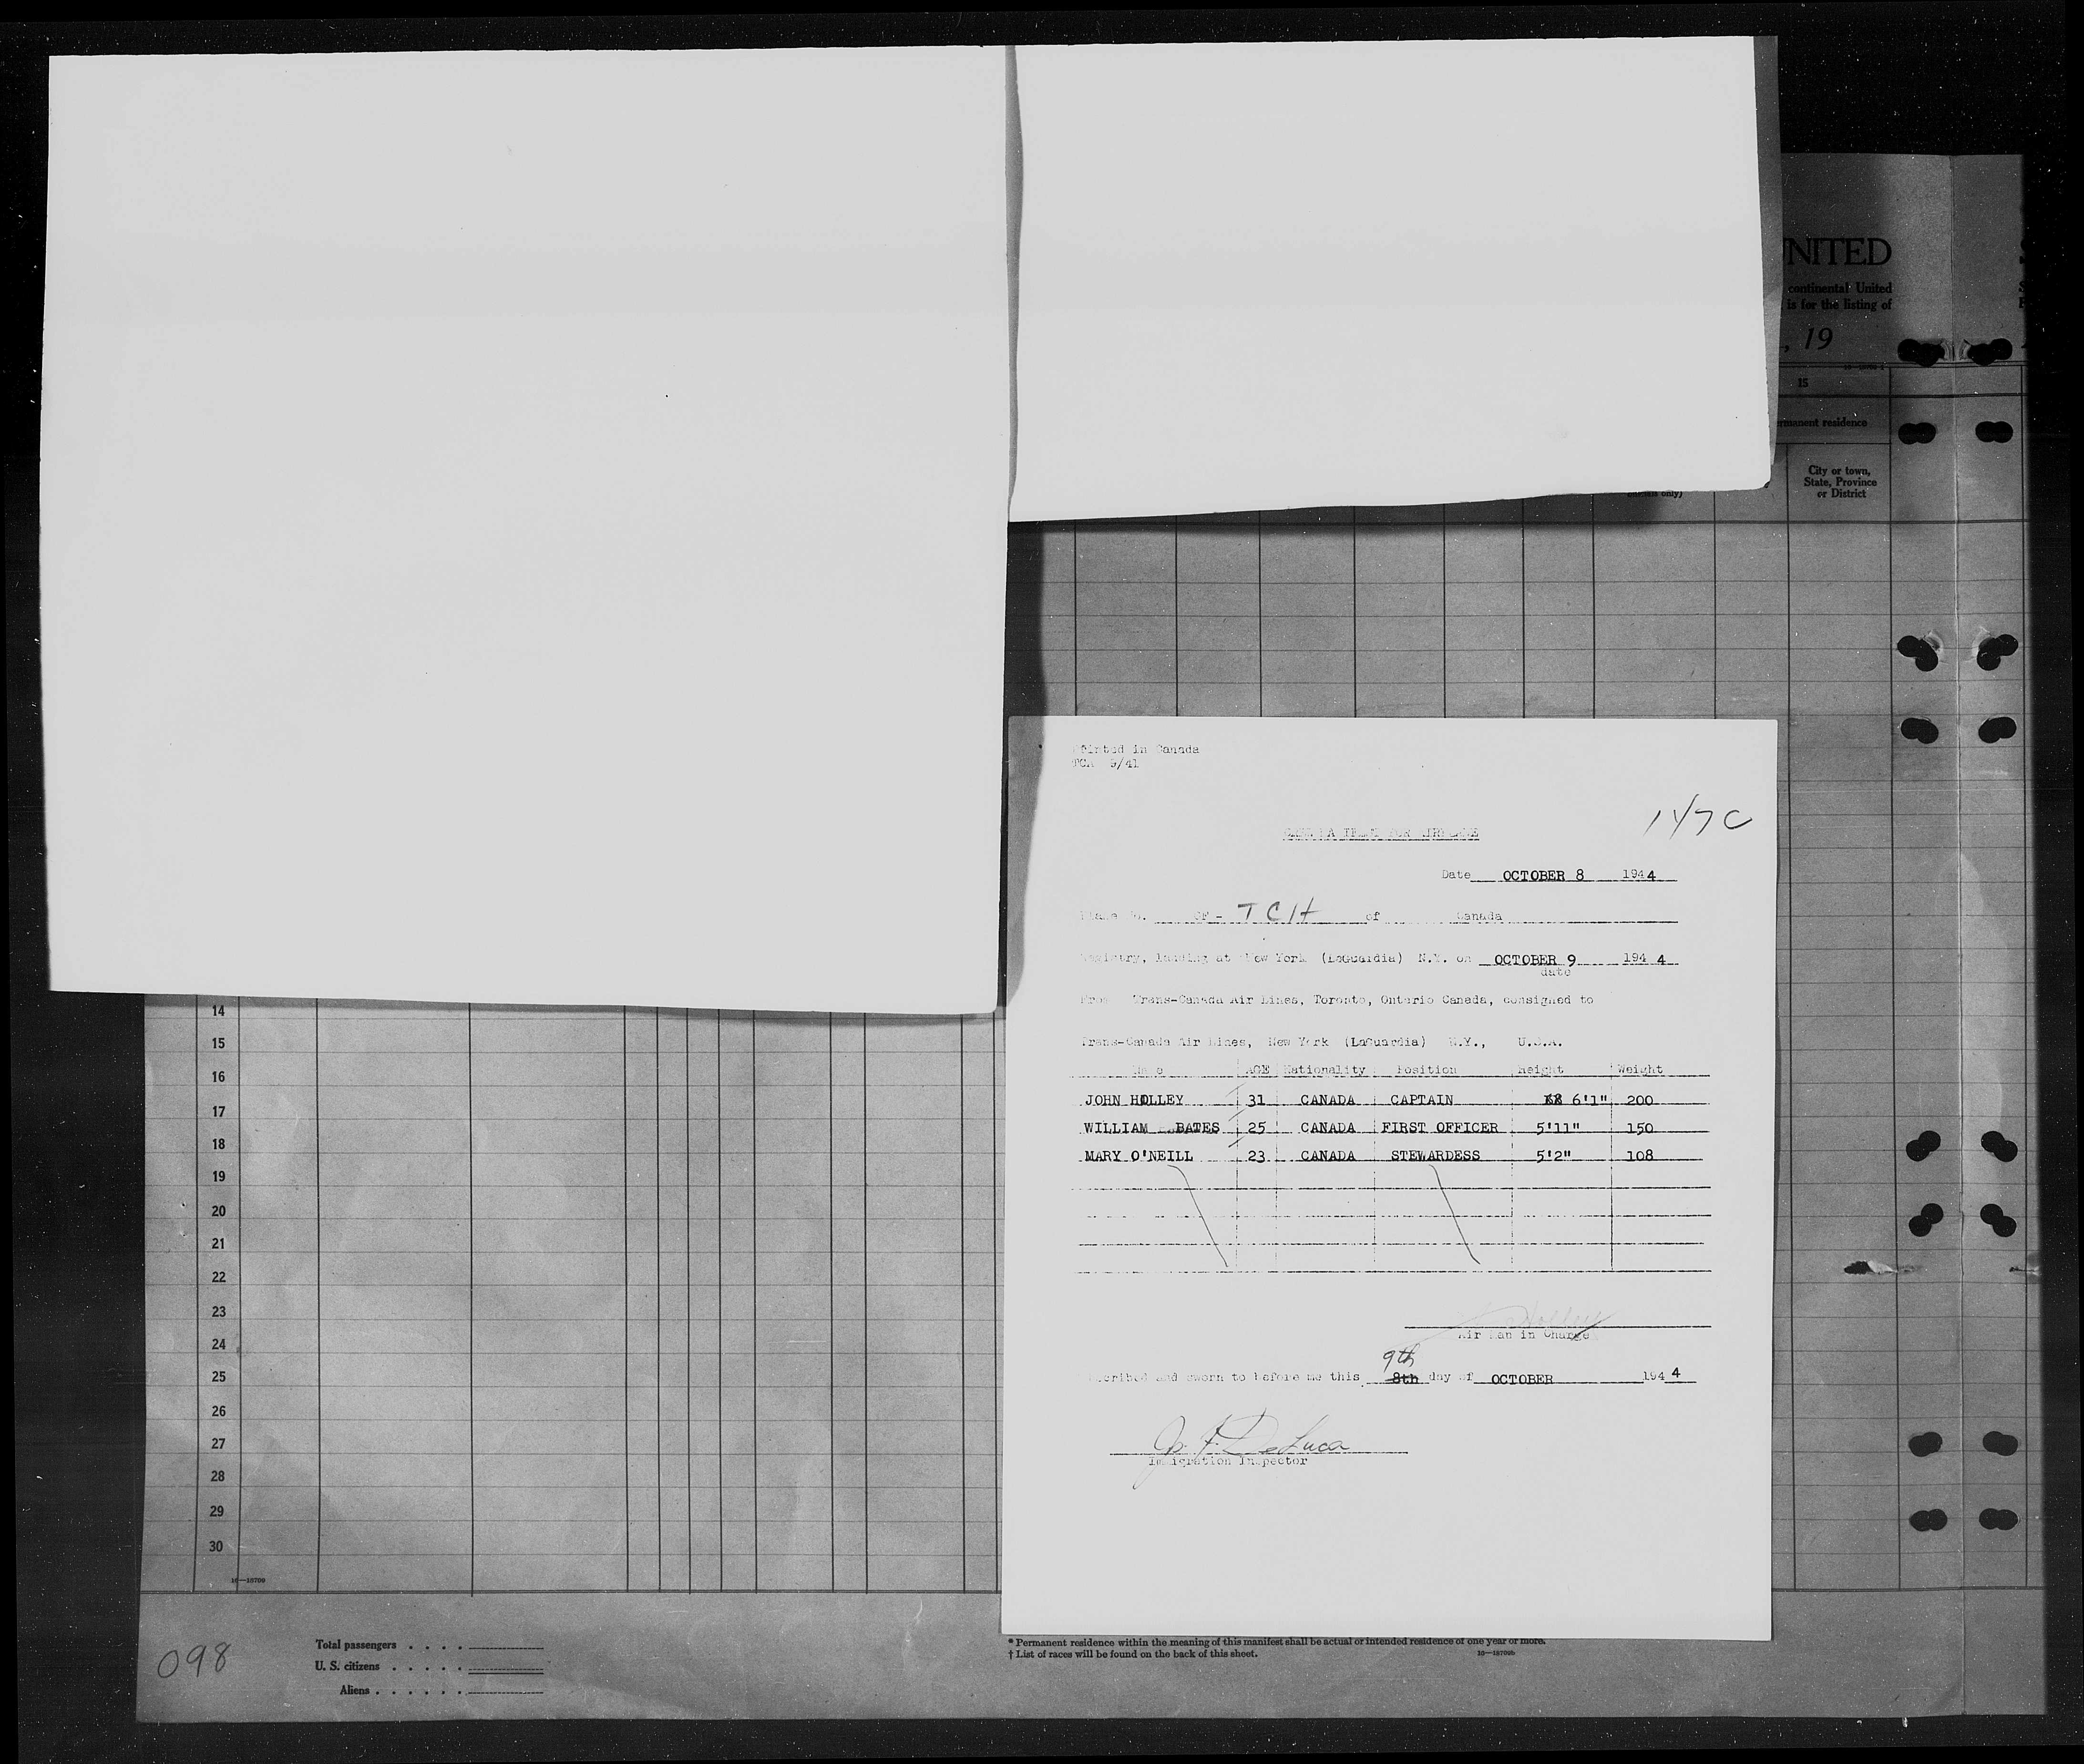 NITED
continental United
is for the listing of
, 19
15
rmanent residence
City or town,
State, Province
or District
only)
Printed in Canada
TCA 9/41
147C
FOR
Date OCTOBER 8 1944
Plane No. CF - TCH of Canada
Registry, landing at New York (LaGuardia) N.Y. on OCTOBER 9 1944
date
From Trans-Canada Air Lines, Toronto, Ontario Canada, consigned to
Trans-Canada Air Lines, New York (LaGuardia) N.Y., U.S.A.
Name AGE Nationality Position Height Weight
JOHN HOLLEY 31 CANADA CAPTAIN 6'1" 200
WILLIAM BATES 25 CANADA FIRST OFFICER 5'11" 150
MARY O'NEILL 23 CANADA STEWARDESS 5'2" 108
Air Man in Charge
9th
scribed and sworn to before me this 8th day of OCTOBER 1944
Jos. F. DeLuca
Immigration Inspector
14
15
16
17
18
19
20
21
22
23
24
25
26
27
28
29
30
16—18700
098
Total passengers . . . .
U. S. citizens . . . . .
Aliens . . . . . .
* Permanent residence within the meaning of this manifest shall be actual or intended residence of one year or more.
† List of races will be found on the back of this sheet.